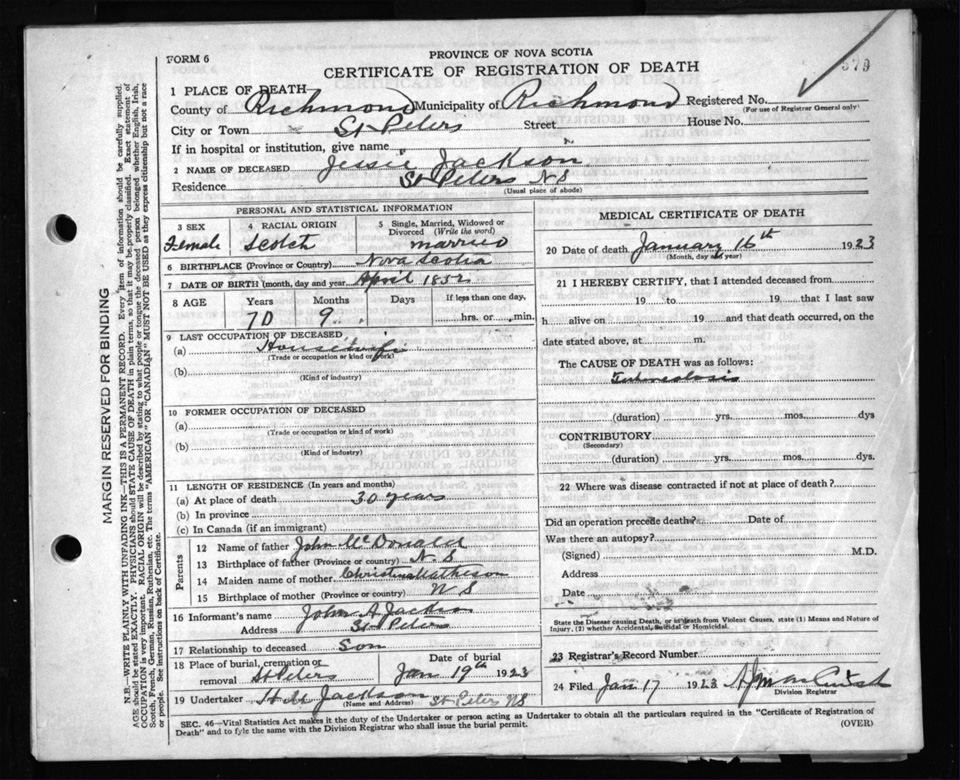 FORM 6
PROVINCE OF NOVA SCOTIA
CERTIFICATE OF REGISTRATION OF DEATH
579
1 PLACE OF DEATH
County of Richmond Municipality of Richmond Registered No.
(For use of Registrar General only)
City or Town St Peters Street House No.
If in hospital or institution, give name
2 NAME OF DECEASED Jessie Jackson
Residence St Peters N S
(Usual place of abode)
PERSONAL AND STATISTICAL INFORMATION
3 SEX
Female
4 RACIAL ORIGIN
Scotch
5 Single, Married, Widowed or Divorced (Write the word)
married
6 BIRTHPLACE (Province or Country) Nova Scotia
7 DATE OF BIRTH (month, day and year) April 1852
8 AGE Years Months Days If less than one day,
70 9 hrs. or min.
9 LAST OCCUPATION OF DECEASED
(a) Housewife
(Trade or occupation or kind of work)
(b)
(Kind of industry)
10 FORMER OCCUPATION OF DECEASED
(a)
(Trade or occupation or kind of work)
(b)
(Kind of industry)
11 LENGTH OF RESIDENCE (In years and months)
(a) At place of death 30 years
(b) In province
(c) In Canada (if an immigrant)
Parents
12 Name of father John McDonald
13 Birthplace of father (Province or country) N. S
14 Maiden name of mother Christina Matheson
15 Birthplace of mother (Province or country) N S
16 Informant's name John A Jackson
Address St Peters
17 Relationship to deceased Son
18 Place of burial, cremation or removal St Peters
Date of burial
Jan 19th 1923
19 Undertaker Jackson St Peters NS
(Name and Address)
MEDICAL CERTIFICATE OF DEATH
20 Date of death January 16th 1923
(Month, day and year)
21 I HEREBY CERTIFY, that I attended deceased from
19 to 19 that I last saw
h alive on 19 and that death occurred, on the
date stated above, at m.
The CAUSE OF DEATH was as follows:
Tuberculosis
(duration) yrs. mos. dys
CONTRIBUTORY
(Secondary)
(duration) yrs. mos. dys.
22 Where was disease contracted if not at place of death?
Did an operation precede death? Date of
Was there an autopsy?
(Signed) M.D.
Address
Date
State the Disease causing Death, or in death from Violent Causes, state (1) Means and Nature of
Injury, (2) whether Accidental, Suicidal or Homicidal.
23 Registrar's Record Number
24 Filed Jan 17 1923
Division Registrar
SEC. 46—Vital Statistics Act makes it the duty of the Undertaker or person acting as Undertaker to obtain all the particulars required in the "Certificate of Registration of
Death" and to fyle the same with the Division Registrar who shall issue the burial permit. (OVER)
MARGIN RESERVED FOR BINDING
N.B.—WRITE PLAINLY WITH UNFADING INK—THIS IS A PERMANENT RECORD. Every item of information should be carefully supplied.
AGE should be stated EXACTLY. PHYSICIANS should STATE CAUSE OF DEATH in plain terms, so that it may be properly classified. Exact statement of
OCCUPATION is very important. RACIAL ORIGIN will be described by stating to what people or tongue the deceased person belonged whether English, Irish,
Scotch, French, German, Russian, Ruthenian, etc. The terms "AMERICAN" OR "CANADIAN" MUST NOT BE USED as they express citizenship but not a race
or people. See instructions on back of Certificate.